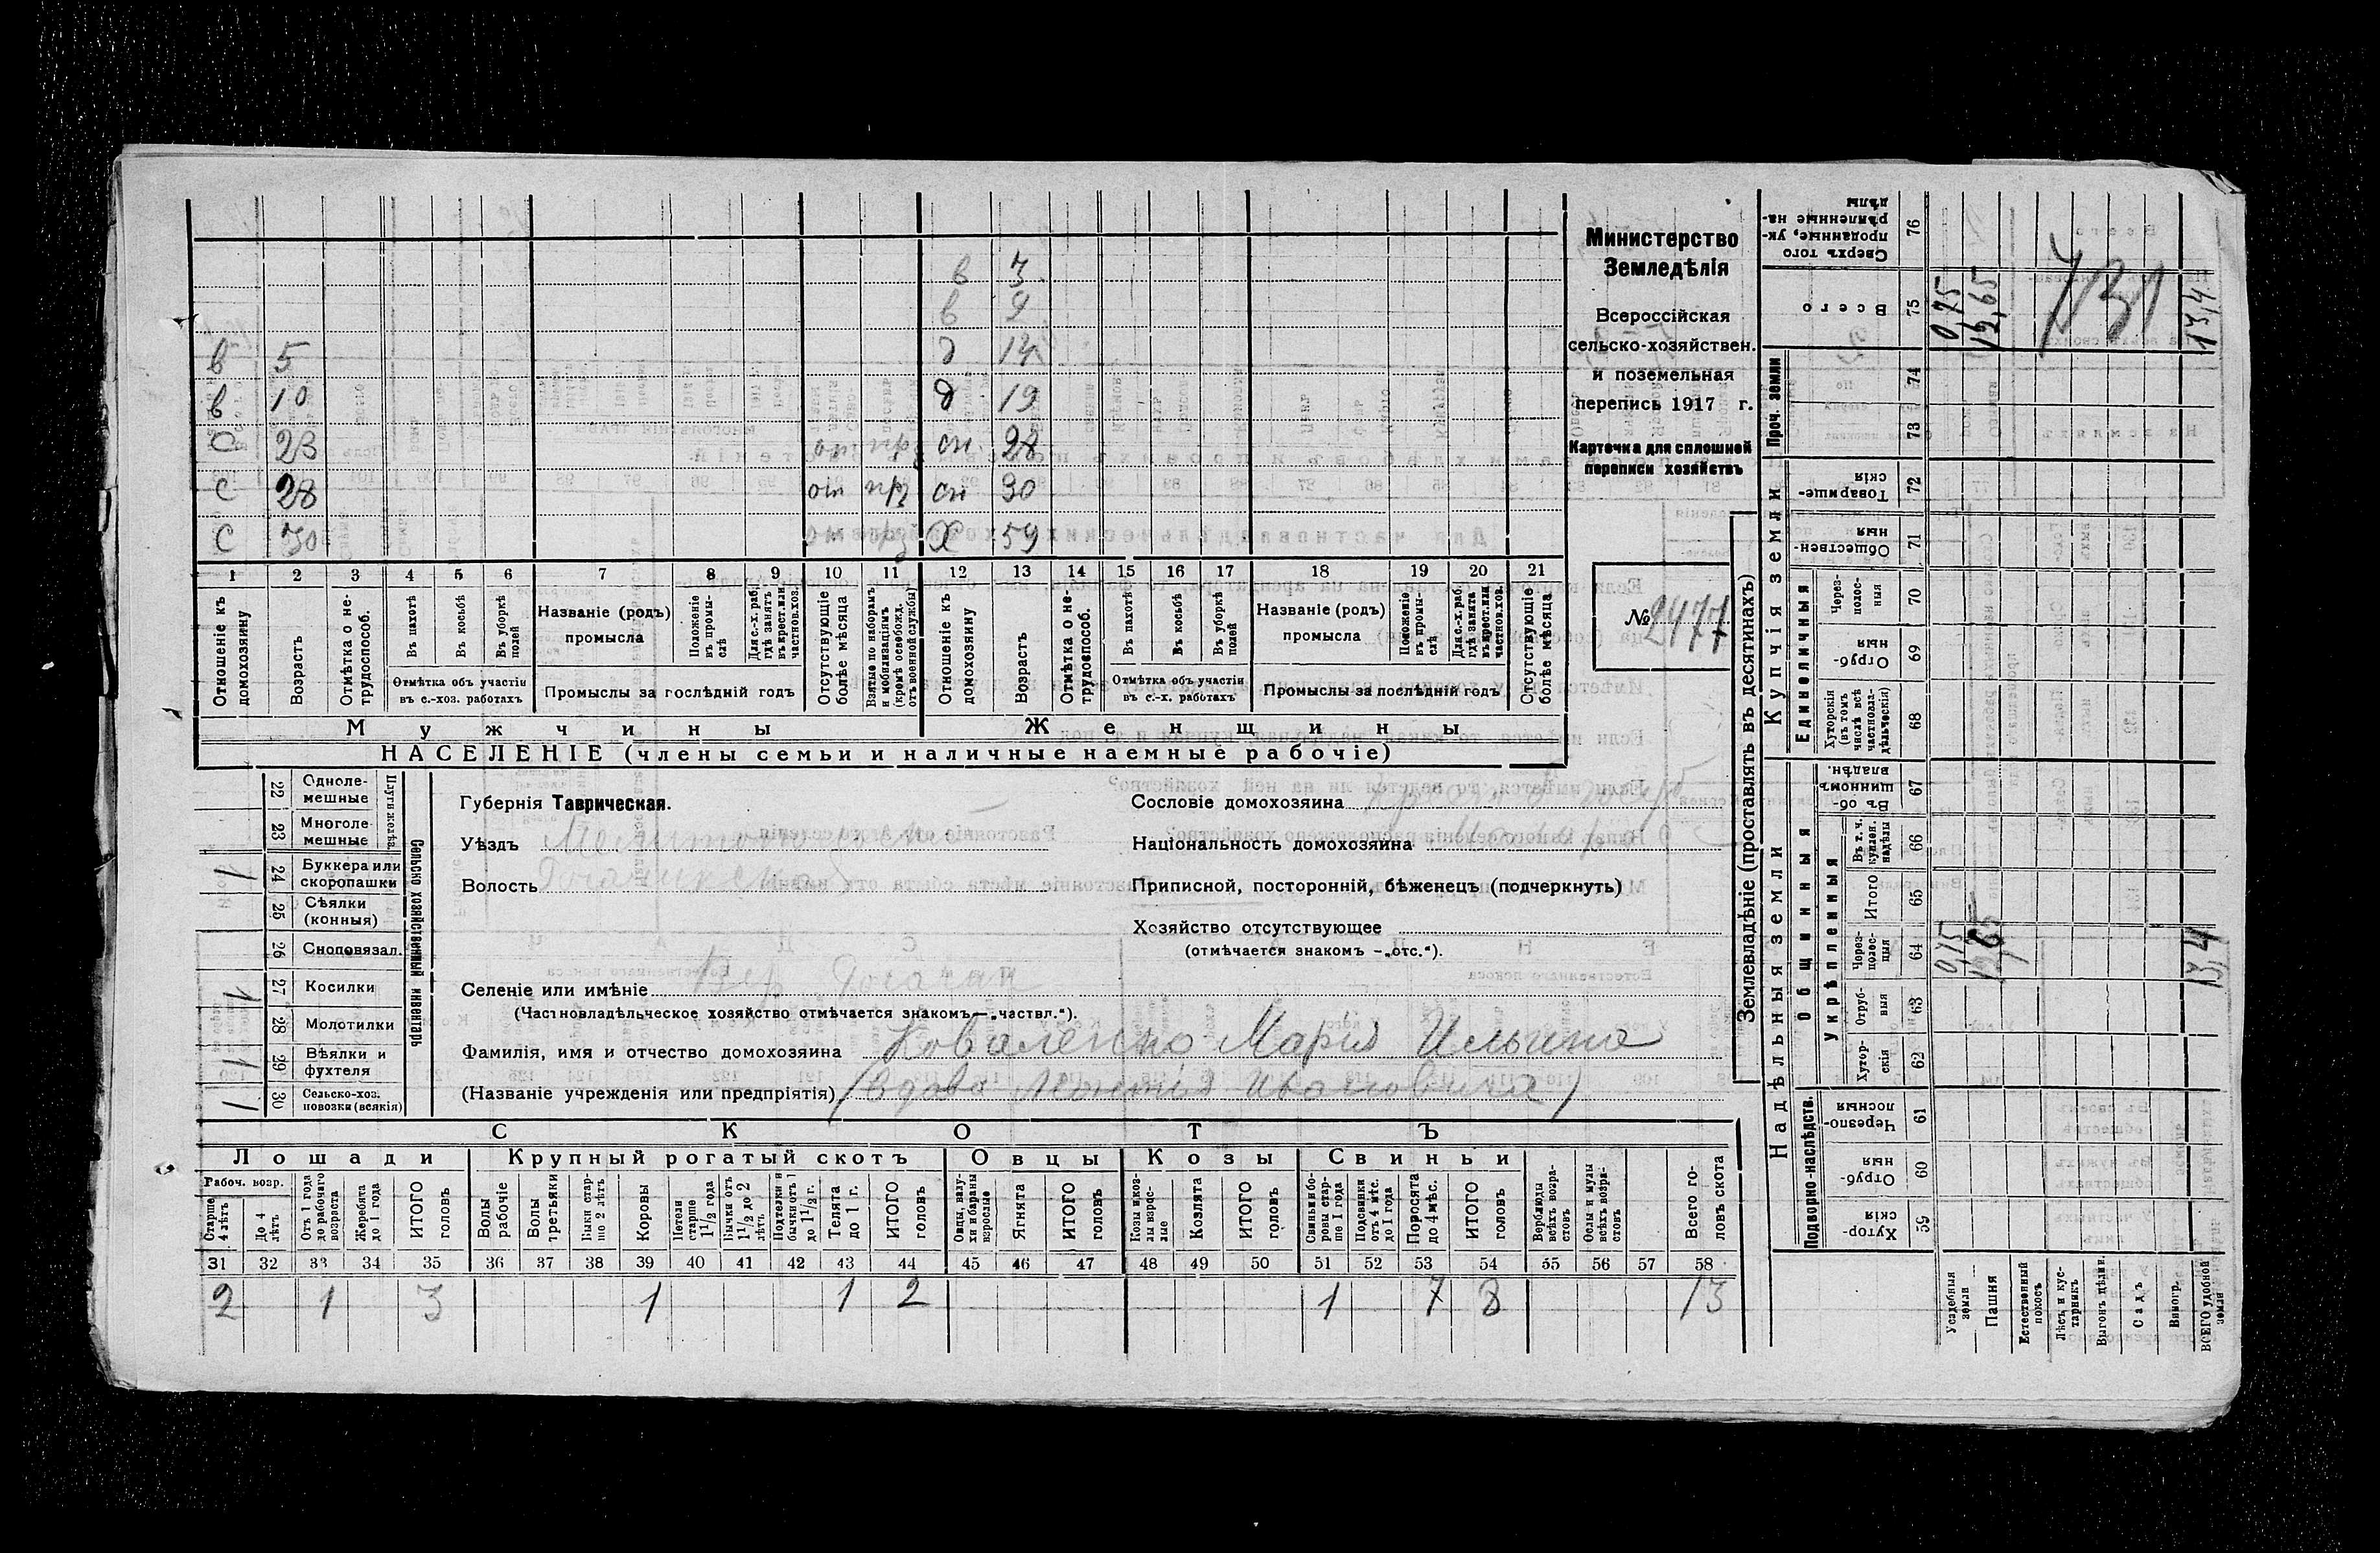 в 3
в 9
в 5 д 14
в 10 д 19
с 23 от пр сн 28
с 28 от пр сн 30
с 30 от пр Х 59
1 2 3 4 5 6 7 8 9 10 11 12 13 14 15 16 17 18 19 20 21
Отношеніе къ домохозяину
Возрастъ
Отмѣтка о нетрудоспособ.
Въ пахотѣ
Въ косьбѣ
Въ уборкѣ полей
Отмѣтка объ участіи въ с.-хоз. работахъ
Названіе (родъ) промысла
Положеніе въ промыслѣ
Для с.-х. раб. гдѣ занятъ въ крест. или частнов. хоз.
Промыслы за послѣдній годъ
Отсутствующіе болѣе мѣсяца
Взятые по наборамъ и мобилизаціямъ (кромѣ освобожд. отъ военной службы)
Отношеніе къ домохозяину
Возрастъ
Отмѣтка о нетрудоспособ.
Въ пахотѣ
Въ косьбѣ
Въ уборкѣ полей
Отмѣтка объ участіи въ с.-х. работахъ
Названіе (родъ) промысла
Положеніе въ промыслѣ
Для с.-х. раб. гдѣ занята въ крест. или частнов. хоз.
Промыслы за послѣдній годъ
Отсутствующіе болѣе мѣсяца
Мужчины Женщины
НАСЕЛЕНІЕ (члены семьи и наличные наемные рабочіе)
Министерство
Земледѣлія
Всероссійская
сельско-хозяйствен.
и поземельная
перепись 1917 г.
Карточка для сплошной
переписи хозяйствъ
№ 2477
Сельско хозяйственный инвентарь
Плуги желѣзн.
22 Одноле-мешные
23 Многоле-мешные
24 Буккера или скоропашки 1
25 Сѣялки (конныя)
26 Сноповязал.
27 Косилки 1
28 Молотилки
29 Вѣялки и фухтеля 1
30 Сельско-хоз. повозки (всякія) 1
Губернія Таврическая.
Уѣздъ Мелитопольскій
Волость Рогачикская
Селеніе или имѣніе Вер Рогачик
(Частновладѣльческое хозяйство отмѣчается знакомъ—„частвл.“).
Фамилія, имя и отчество домохозяина Коваленко Марія Ильина
(Названіе учрежденія или предпріятія) (вдова Леонтія Ивановича)
Сословіе домохозяина
Національность домохозяина
Приписной, посторонній, бѣженецъ (подчеркнуть)
Хозяйство отсутствующее
(отмѣчается знакомъ —„отс.“).
СКОТЪ
Лошади Крупный рогатый скотъ Овцы Козы Свиньи
Рабоч. возр.
Старше 4 лѣтъ
До 4 лѣтъ
Отъ 1 года до рабочаго возраста
Жеребята до 1 года
ИТОГО головъ
Волы рабочіе
Волы третьяки
Быки старше 2 лѣтъ
Коровы
Нетели старше 1½ года
Бычки отъ 1½ до 2 лѣтъ
Подтелки и бычки отъ 1 до 1½ г.
Телята до 1 г.
ИТОГО головъ
Овцы, валухи и бараны взрослые
Ягнята
ИТОГО головъ
Козы и козлы взрослые
Козлята
ИТОГО головъ
Свиньи и боровы старше 1 года
Подсвинки отъ 4 мѣс. до 1 года
Поросята до 4 мѣс.
ИТОГО головъ
Верблюды всѣхъ возрастовъ
Ослы и мулы всѣхъ возрастовъ
Всего головъ скота
31 32 33 34 35 36 37 38 39 40 41 42 43 44 45 46 47 48 49 50 51 52 53 54 55 56 57 58
2 1 3 1 1 2 1 7 8 13
Землевладѣніе (проставлять въ десятинахъ)
Надѣльныя земли
Подворно-наслѣдств.
Хуторскія 59
Отрубныя 60
Черезполосныя 61
Общинныя
Укрѣпленныя
Хуторскія 62
Отрубныя 63
Черезполосныя 64 0,75 12,65 13,4
Итого 65
Въ т. ч. куплен. надѣлы 66
Въ общинномъ владѣн. 67
Купчія земли
Единоличныя
Хуторскія (въ томъ числѣ всѣ частновладѣльческія) 68
Отрубныя 69
Черезполосныя 70
Общественныя 71
Товарищескія 72
Проч. земли
73
74
Всего 75 0,75 12,65 13,4
Сверхъ того проданные, укрѣпленные надѣлы 76
731
Усадебныя земли
Пашня
Естественный покосъ
Лѣсъ и кустарникъ
Выгонъ цѣлин.
Садъ
Виногр.
ВСЕГО удобной земли